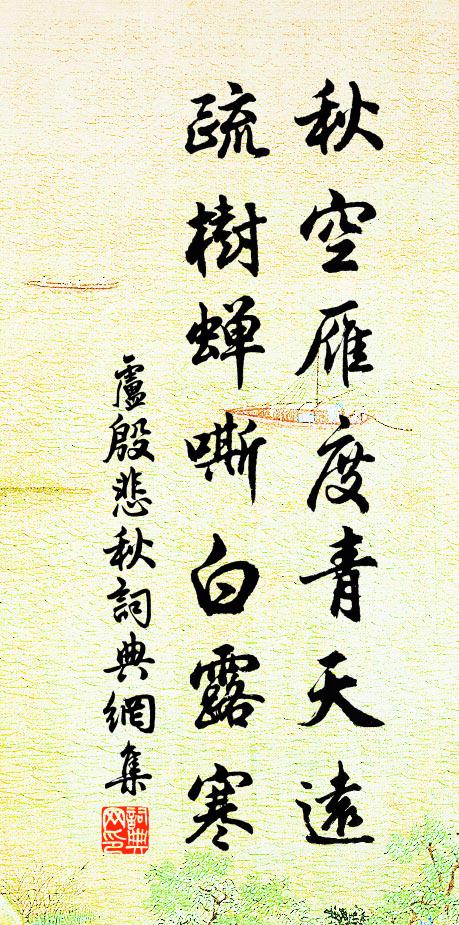 秋空雁度青天遠
疏樹蟬嘶白露寒
盧殷悲秋詞典網集
詞典網印